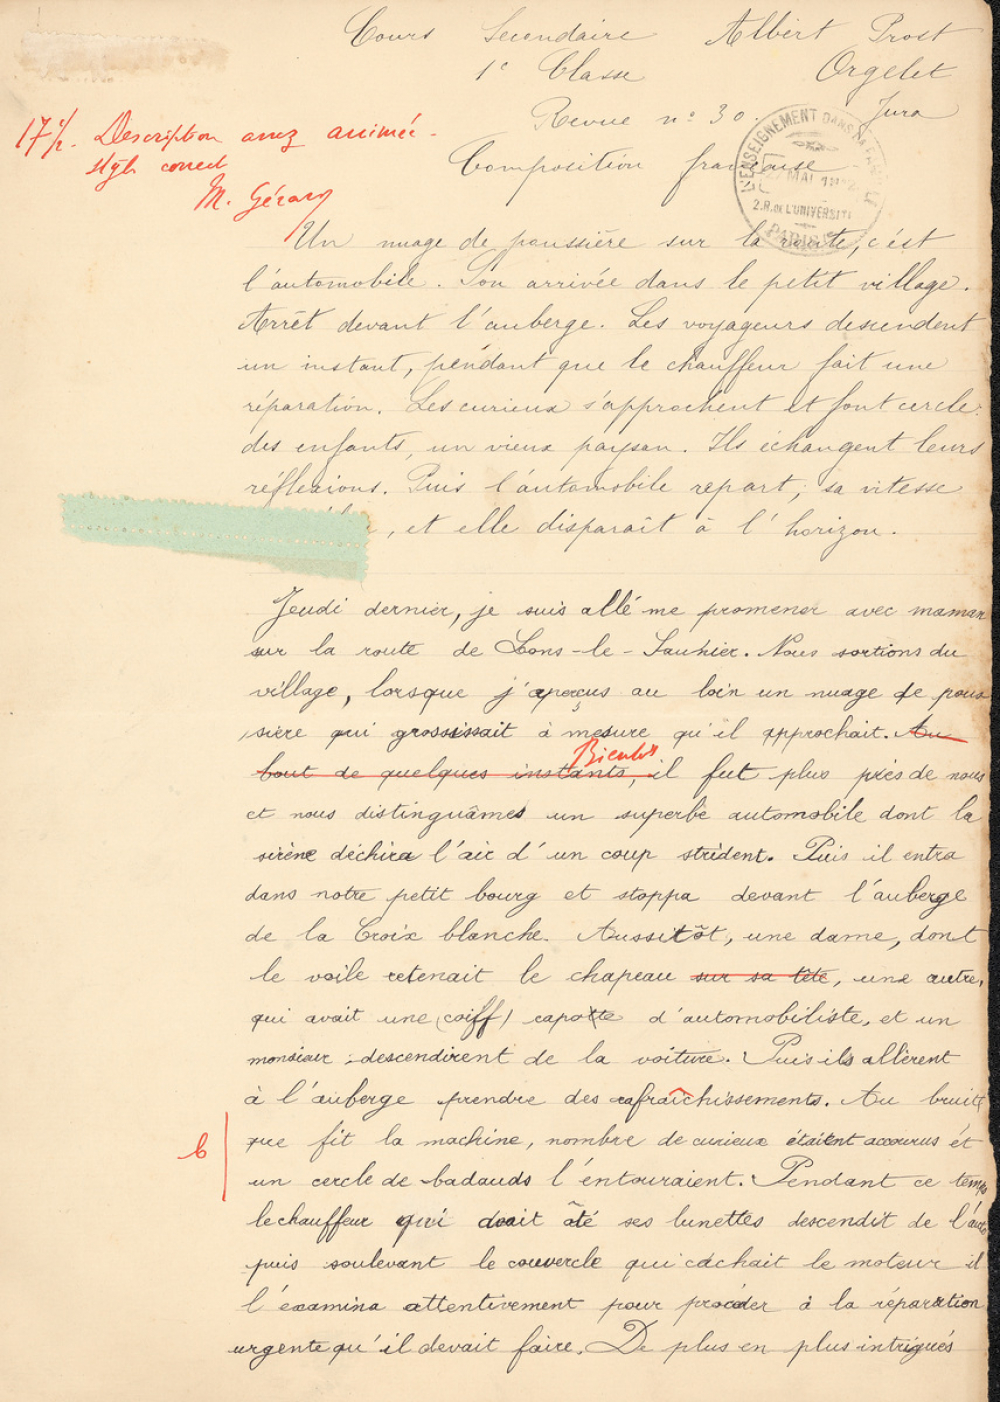 Cours Secondaire Albert Prost
1e Classe Orgelet
Revue no 30. Jura
17 1/2. Description assez animée.
style correct
M. Gérard
Composition française
L'ENSEIGNEMENT DANS LA
MAI
2.R. DE L'UNIVERSITÉ
PARIS
Un nuage de poussière sur la route, c'est
l'automobile. Son arrivée dans le petit village.
Arrêt devant l'auberge. Les voyageurs descendent
un instant, pendant que le chauffeur fait une
réparation. Les curieux s'approchent et font cercle:
des enfants, un vieux paysan. Ils échangent leurs
réflexions. Puis l'automobile repart; sa vitesse
, et elle disparaît à l'horizon.
Jeudi dernier, je suis allé me promener avec maman
sur la route de Lons-le-Saunier. Nous sortions du
village, lorsque j'aperçus au loin un nuage de pous
sière qui grossissait à mesure qu'il approchait. Au
Bientôt
bout de quelques instants, il fut plus près de nous
et nous distinguâmes un superbe automobile dont la
sirène déchira l'air d'un coup strident. Puis il entra
dans notre petit bourg et stoppa devant l'auberge
de la Croix blanche. Aussitôt, une dame, dont
le voile retenait le chapeau sur sa tête, une autre,
qui avait une (coiff) capote d'automobiliste, et un
monsieur descendirent de la voiture. Puis ils allèrent
à l'auberge prendre des rafraîchissements. Au bruit
b que fit la machine, nombre de curieux étaient accourus et
un cercle de badauds l'entouraient. Pendant ce temps
le chauffeur qui avait ôté ses lunettes descendit de l'auto
puis soulevant le couvercle qui cachait le moteur il
l'examina attentivement pour procéder à la réparation
urgente qu'il devait faire. De plus en plus intrigués